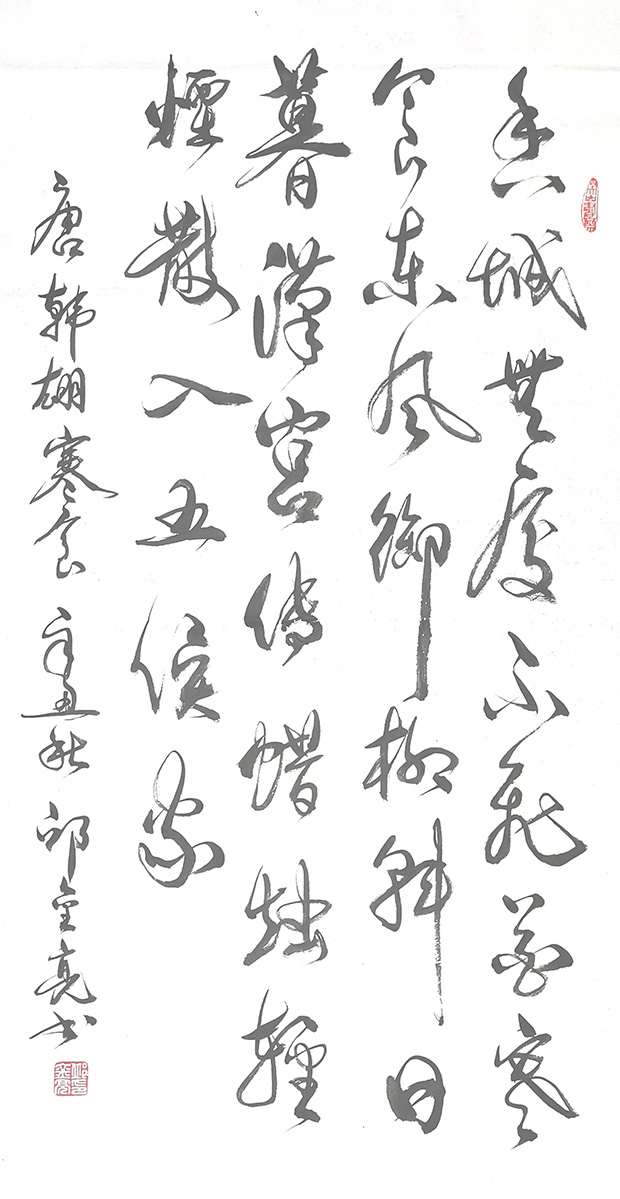 春城無處不飛花寒
食東風御柳斜日
暮漢宮傳蜡烛輕
煙散入五侯家
唐韓翃寒食 辛丑秋 邱金亮书